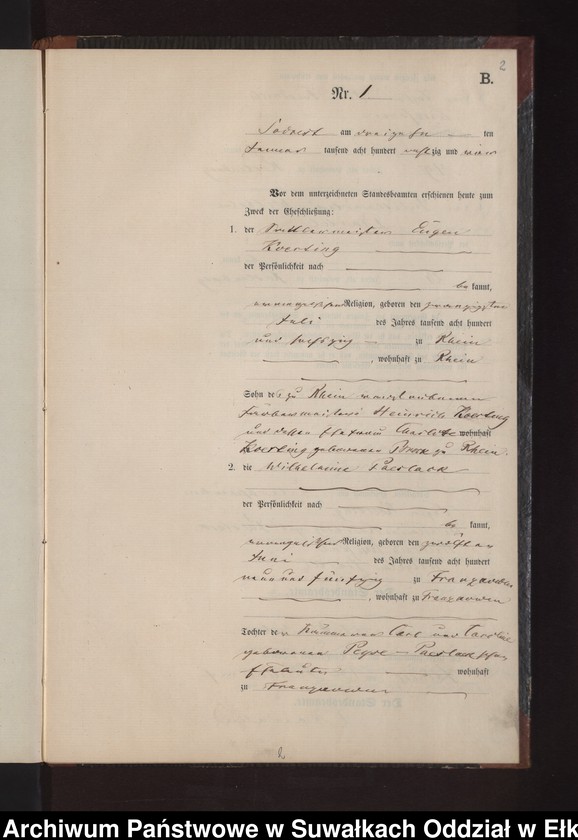 2
B.
Nr. 1
am dreizehn ten
Januar tausend acht hundert achtzig und
Vor dem unterzeichneten Standesbeamten erschienen heute zum
Zweck der Eheschließung:
1. der Eugen
Koerting
der Persönlichkeit nach
be kannt,
evangelischer Religion, geboren den zwanzigsten
Juli des Jahres tausend acht hundert
und sechszig zu Rhein
, wohnhaft zu Rhein
Sohn des zu Rhein verstorbenen
Heinrich Koerting
und dessen Ehefrau Charlotte wohnhaft
Koerting geborenen zu Rhein.
2. die Wilhelmine Paerlack
der Persönlichkeit nach
be kannt,
evangelischer Religion, geboren den zwölften
Juni des Jahres tausend acht hundert
neun und fünfzig zu Franzawen
, wohnhaft zu Franzawen
Tochter der Carl und Caroline
geborenen Paerlackschen
Eheleute wohnhaft
zu Franzawen
2
Archiwum Państwowe w Suwałkach Oddział w Ełk